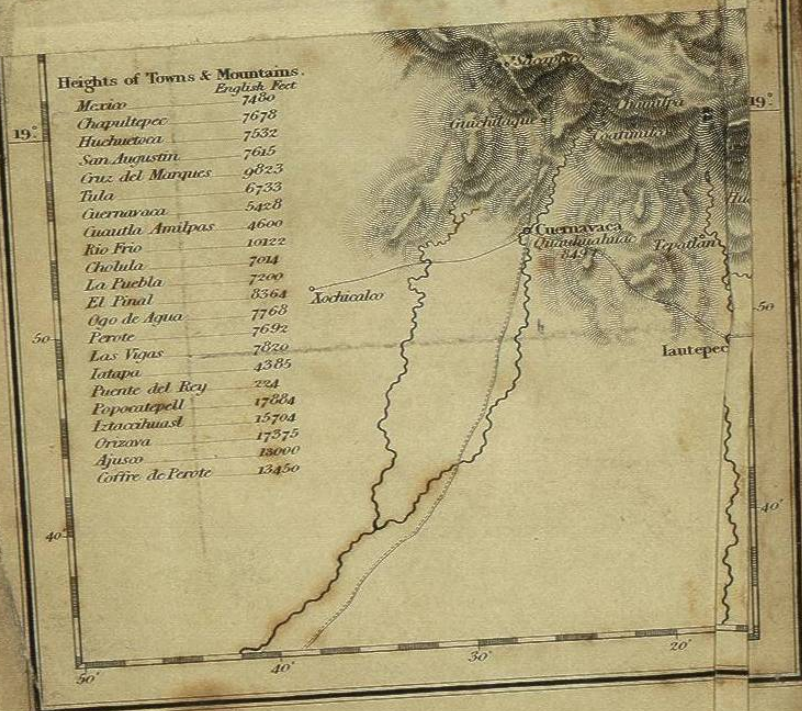 Heights of Towns & Mountains.
English Feet
Mexico 7480
Chapultepec 7678
Huehuetoca 7532
San Augustin 7615
Cruz del Marques 9823
Tula 6733
Cuernavaca 5428
Cuautla Amilpas 4600
Rio Frio 10122
Cholula 7014
La Puebla 7200
El Pinal 8364
Ogo de Agua 7768
Perote 7692
Las Vigas 7820
Iatapa 4385
Puente del Rey 224
Popocatepell 17884
Iztaccihuasl 15704
Orizava 17375
Ajusco 13000
Coffre de Perote 13450
19°
19°
Guichilaque
Coatimilco
Cuernavaca
Quauhnahuac
Tepatlan
Xochicalco
50
50
Iautepec
40'
40'
50'
40'
30'
20'